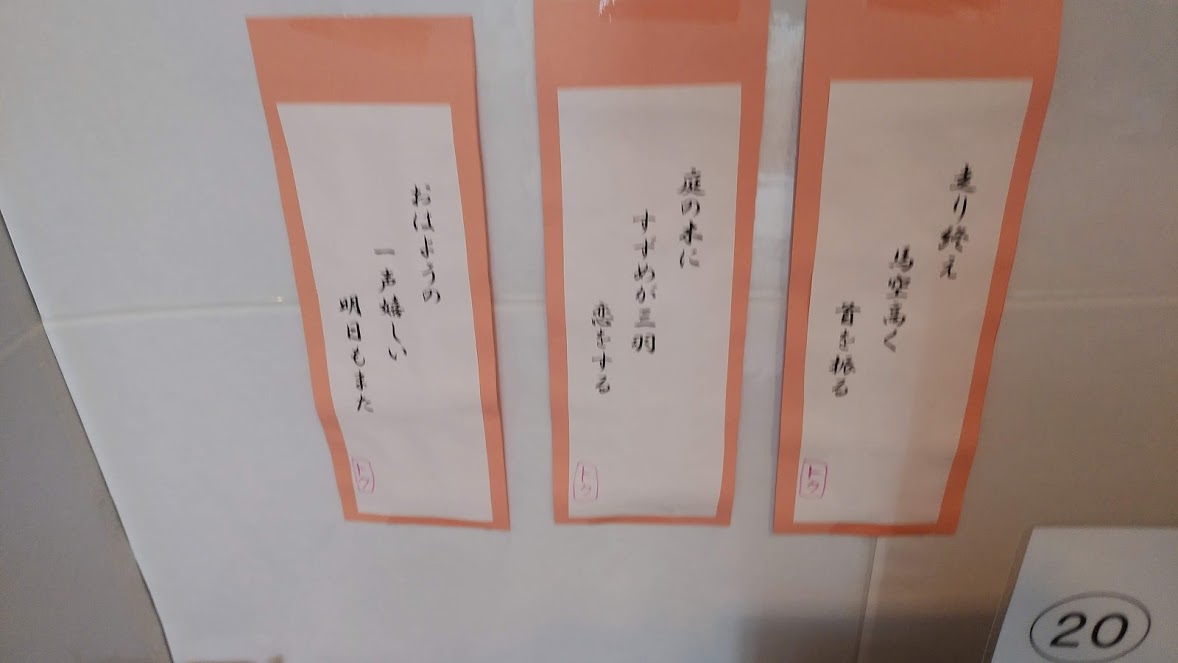 走り終え
馬空高く
首を振る
トク
庭の木に
すずめが三羽
恋をする
トク
おはようの
一声嬉しい
明日もまた
トク
20